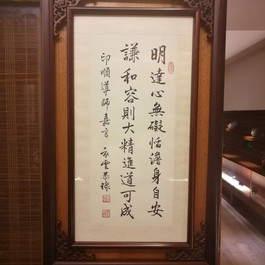 明達心無礙恬澹身自安
謙和容則大精進道可成
印順導師嘉言